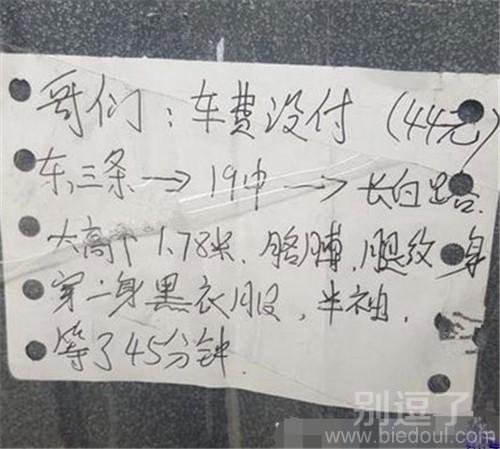 哥们：车费没付（44元）
东三条→19中→长白路
大高个1.78米、胳膊、腿纹身
穿一身黑衣服，半袖，
等了45分钟
别逗了
www.biedoul.com